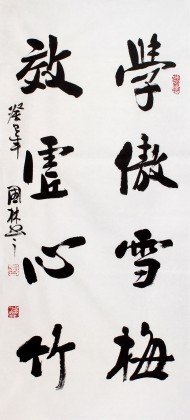 學傲雪梅
效虛心竹
癸巳年 國林